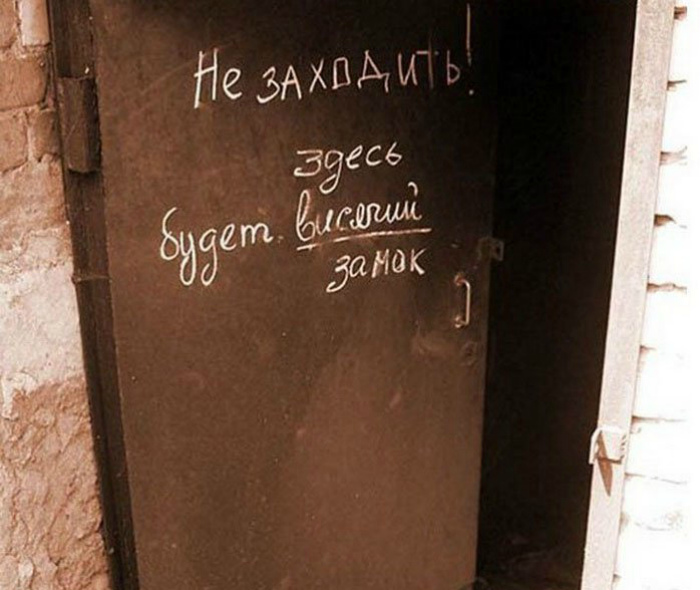 Не ЗАХОДИТЬ!
здесь
будет висячий
замок